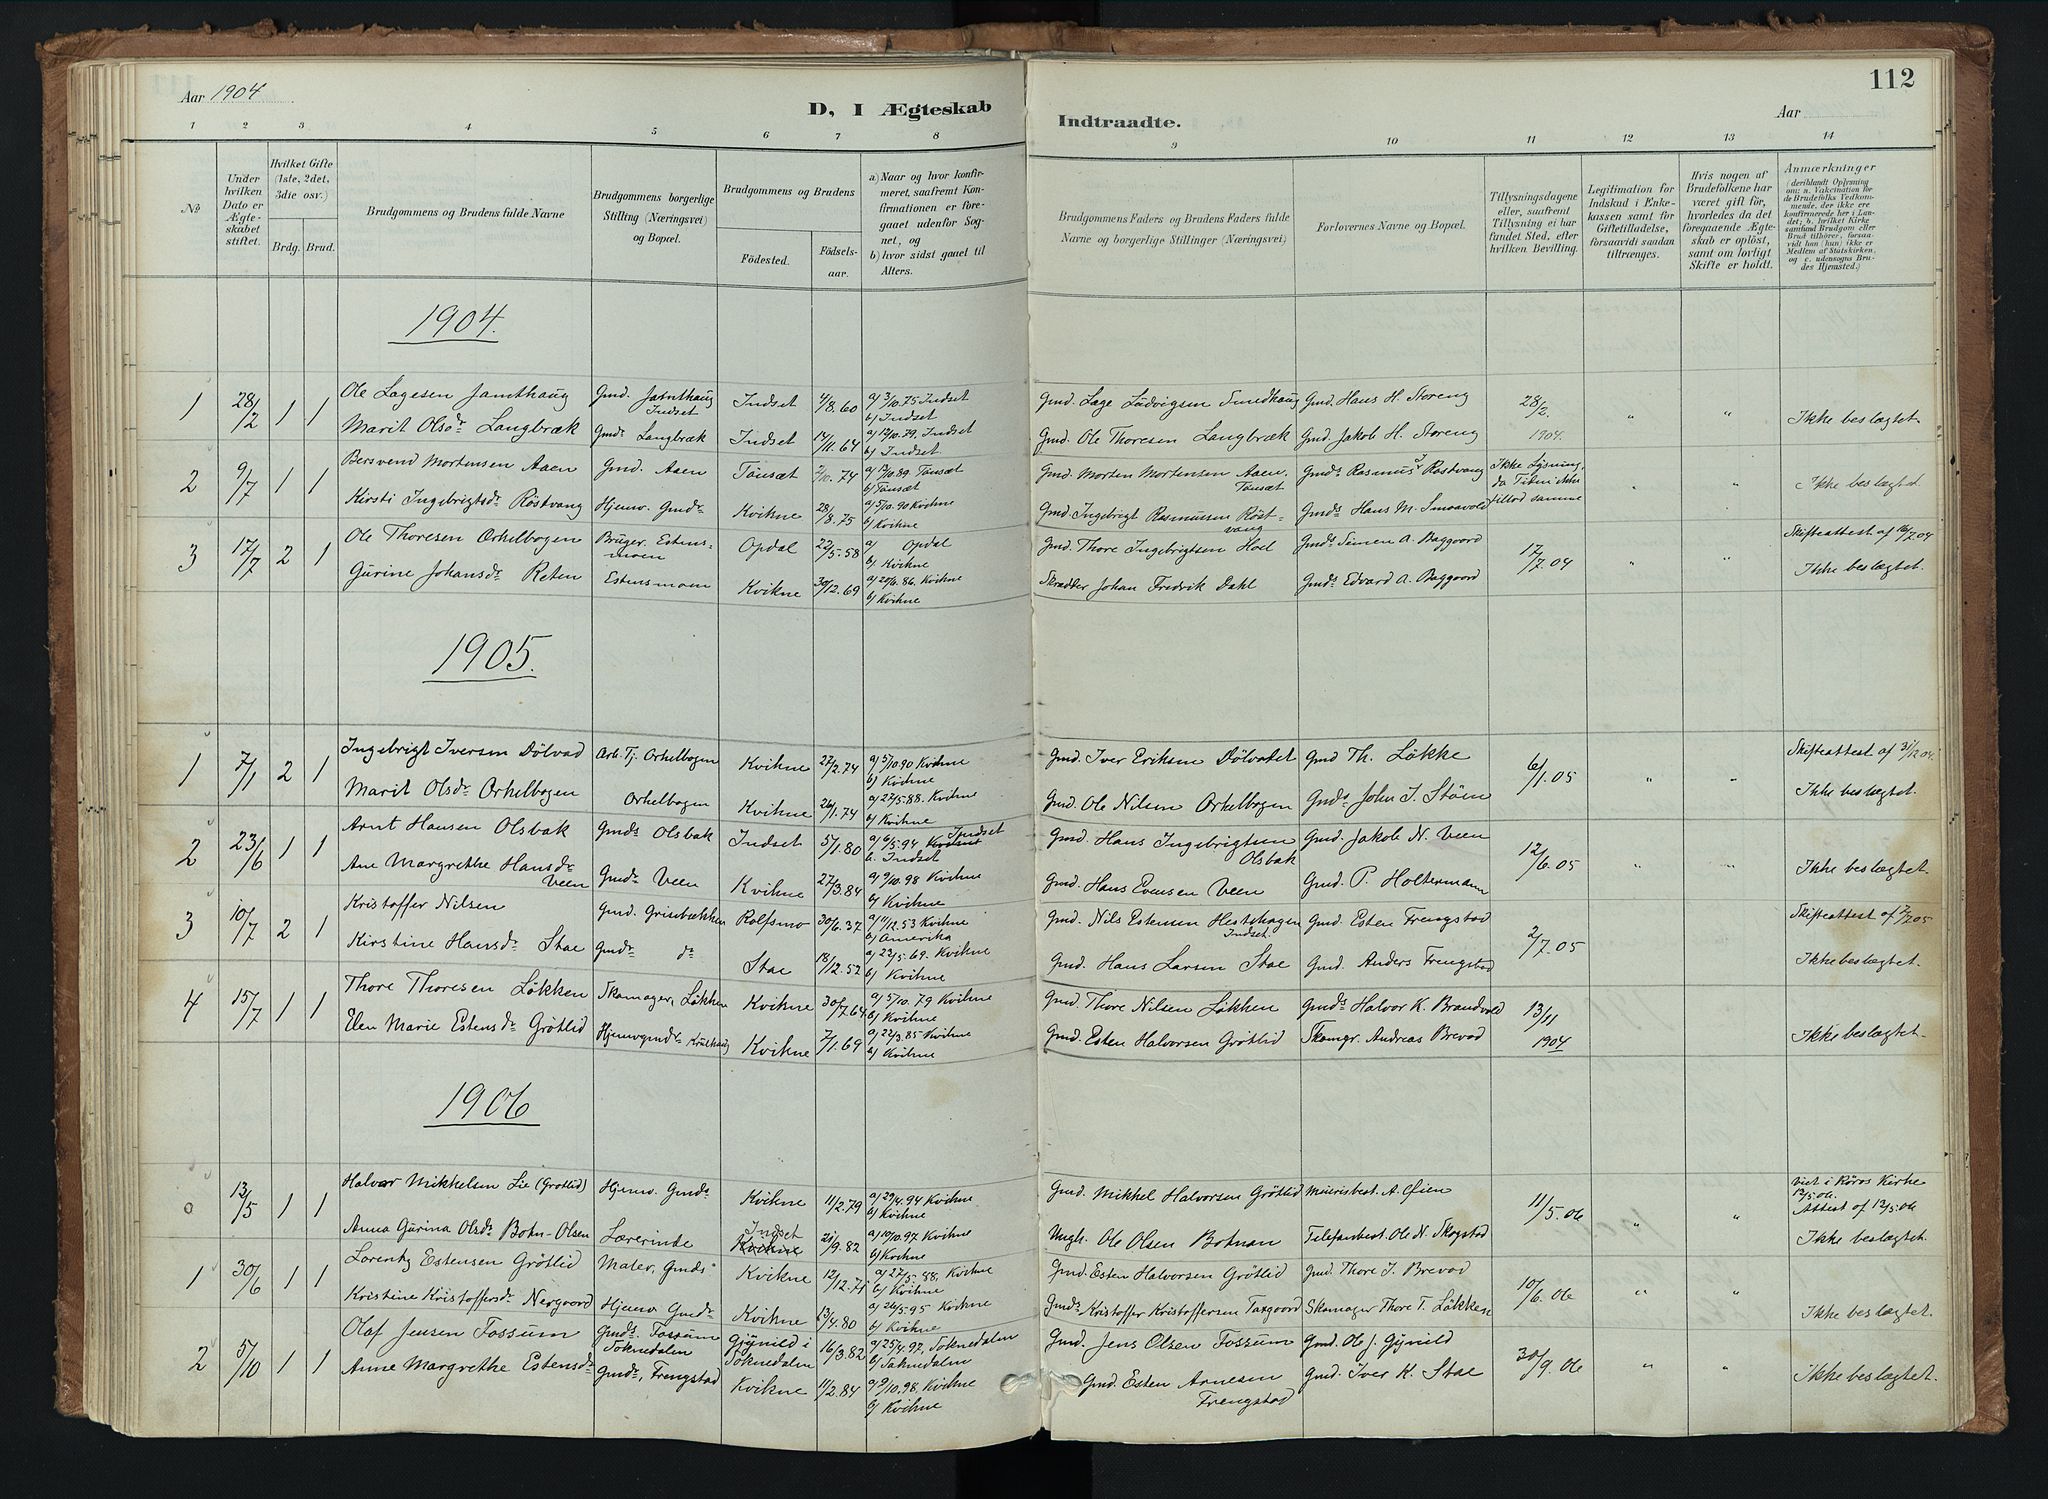 Aar 1904
D, I Ægteskab
Indtraadte.
Aar
112
1 2 3 4 5 6 7 8 9 10 11 12 13 14
No
Under hvilken Dato er Ægteskabet stiftet.
Hvilket Gifte (1ste, 2det, 3die osv.)
Brdg. Brud.
Brudgommens og Brudens fulde Navne
Brudgommens borgerlige Stilling (Næringsvei) og Bopæl.
Brudgommens og Brudens
Födested.
Födselsaar.
a) Naar og hvor konfirmeret, saafremt Konfirmationen er foregaaet udenfor Sognet, og
b) hvor sidst gaaet til Alters.
Brudgommens Faders og Brudens Faders fulde Navne og borgerlige Stillinger (Næringsvei)
Forlovernes Navne og Bopæl.
Tillysningsdagene eller, saafremt Tillysning ei har fundet Sted, efter hvilken Bevilling.
Legitimation for Indskud i Enkekassen samt for Giftetilladelse, forsaavidt saadan tiltrænges.
Hvis nogen af Brudefolkene har været gift før, hvorledes da det foregaaende Ægteskab er oplöst, samt om lovligt Skifte er holdt.
Anmærkninger (deriblandt Oplysning om: a. Vakcination for de Brudefolks Vedkommende, der ikke ere konfirmerede her i Landet; b. hvilket Kirkesamfund Brudgom eller Brud tilhörer, forsaavidt han (hun) ikke er Medlem af Statskirken, og c. udensogns Brudes Hjemsted.)
1904.
1 28/2 1 1 Ole Lagesen Jamthaug Gmd. Jamthaug Indset Indset 4/8.60 a) 3/10.75 Indset b) Indset Gmd. Lage Ludvigsen Smedhaug Gmd. Hans H. Storeng 28/2. 1904. " " Ikke beslægtet.
Marit Olsdr Langbræk Gmdr Langbræk Indset 14/11.64 a) 12/10.79. Indset b) Indset Gmd. Ole Thoresen Langbræk Gmd. Jakob H. Storeng
2 9/7 1 1 Bersvend Mortensen Aaen Gmd. Aaen Tönsæt 2/10.74 a) 13/10.89 Tönsæt b) Tönsæt Gmd. Morten Mortensen Aaen, Tönsæt Gmds Rasmus J. Rostvang Ikke Lysning, da Tiden ikke tillod samme " " Ikke beslægtet
Kirsti Ingebrigtsdr Röstvang Hjemv. Gmdr Kvikne 28/8.75 a) 5/10.90 Kvikne b) Kvikne Gmd. Ingebrigt Rasmussen Röstvang Gmds Hans M. Smaavold
3 17/7 2 1 Ole Thoresen Orkelbogen Bruger. Estensmoen Opdal 22/5.58 a) Opdal b) Kvikne Gmd. Thore Ingebrigtsen Hoel Gmds Simen A. Baggaard 17/7.04 " " Skifteattest af 16/7.04
Gurine Johansdr Reten Estensmoen Kvikne 30/12.69 a) 20/6.86. Kvikne b) Kvikne Skrædder Johan Fredrik Dahl Gmds Edvard A. Baggaard Ikke beslægtet.
1905.
1 7/1 2 1 Ingebrigt Iversen Dölvad Arb. Tj. Orkelbogen Kvikne 27/2.74 a) 5/10.90 Kvikne b) Kvikne Gmd. Iver Eriksen Dölvadet Gmd Th. Lökke 6/1.05 " " Skifteattest af 31/12.04.
Marit Olsdr Orkelbogen Orkelbogen Kvikne 26/1.74 a) 27/5.88. Kvikne b) Kvikne Gmd. Ole Nilsen Orkelbogen Gmds John I. Stöen Ikke beslægtet.
2 23/6 1 1 Arnt Hansen Olsbak Gmds Olsbak Indset 5/1.80 a) 6/5.94 Indset b. Indset Gmd. Hans Ingebrigtsen Olsbak Gmd. Jakob N. Veen 12/6.05 " " Ikke beslægtet.
Ane Margrethe Hansdr Veen Gmdr Veen Kvikne 27/3.84 a) 9/10.98 Kvikne b) Kvikne Gmd. Hans Evensen Veen Gmd. P. Holtermann
3 10/7 2 1 Kristoffer Nilsen Gmd. Grinbækken Rolfsmo 30/6.37 a) 11/12.53 Kvikne b) Amerika Gmd. Nils Estensen Hestehagen Indset. Gmd. Esten Frengstad 2/7.05 Skifteattest af 7/7.05
Kirstine Hansdr Stae Gmdr do Stae 18/12.52 a) 22/5.69. Kvikne b) Kvikne Gmd. Hans Larsen Stae Gmd. Anders Frengstad Ikke beslægtet.
4 15/7 1 1 Thore Thoresen Lökken Skomager, Lökken Kvikne 30/7.64 a) 5/10.79 Kvikne b) Kvikne Gmd Thore Nilsen Lökken Gmds Halvor K. Brandvold 13/11 1904 Ikke beslægtet.
Elen Marie Estensdr Grötlid Hjemvgmdr Kruthaug Kvikne 7/1.69 a) 22/3.85 Kvikne b) Kvikne Gmd. Esten Halvorsen Grötlid Skomgr. Andreas Brevad
1906
a 13/5 1 1 Halvor Mikkelsen Lie (Grötlid) Hjemv. Gmds Kvikne 11/2.79 a) 29/4.94 Kvikne b) Kvikne Gmd. Mikkel Halvorsen Grötlid Meieribest. A. Öien 11/5.06 " " viet i Röros Kirke 13/5.06. Attest af 13/5.06
Anna Gurina Olsdr Botn-Olsen Lærerinde Indset Kvikne 21/9.82 a) 10/10.97 Kvikne b) Kvikne Ungk. Ole Olsen Botnan Telefonbest. Ole N. Skogstad Ikke beslægtet.
1 30/6 1 1 Lorentz Estensen Grötlid Maler, Gmds Kvikne 12/12.71 a) 27/5.88. Kvikne b) Kvikne Gmd. Esten Halvorsen Grötlid Gmd. Thore I. Brevad 10/6.06 " " Ikke beslægtet.
Kristine Kristoffersdr Nergaard Hjemv. Gmdr Kvikne 13/4.80 a) 26/5.95 Kvikne b) Kvikne Gmds Kristoffer Kristoffersen Taxgaard Skomager Thore T. Lökken
2 5/10 1 1 Olaf Jensen Fossum Gmds. Fossum Soknedalen Gjynild i Soknedalen 16/3.82 a) 25/4.97. Soknedalen b) Soknedalen Gmd. Jens Olsen Fossum Gmd. Ole J. Gynild 30/9.06 " " Ikke beslægtet.
Anne Margrethe Estensdr Gmdr, Frengstad Kvikne 11/2.84 a) 9/10.98. Kvikne b) Kvikne Gmd. Esten Arnesen Frengstad Gmd. Iver K. Stae